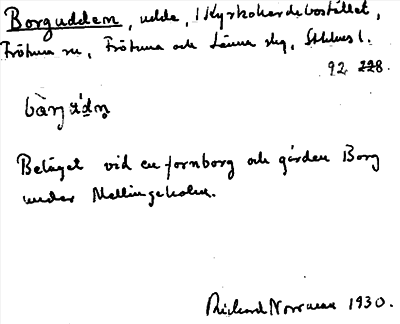 Borgudden, udde, 1 Kyrkoherdebostället,
Frötuna sn, Frötuna och Länna skg, Sthlms l.
92 228.
Beläget vid en fornborg och gården Borg
under Mellingeholm.
Richard Norrman 1930.